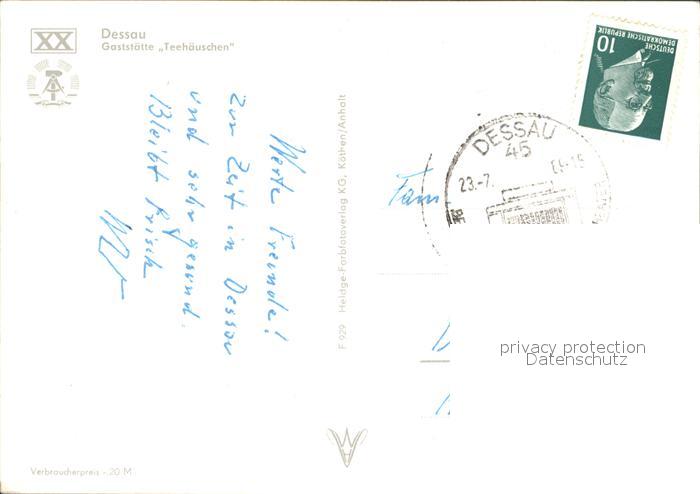 XX
Dessau
Gaststätte „Teehäuschen"
Werte Freunde!
Zur Zeit in Dessau
und sehr gesund.
Bleibt frisch
F 929 Heldge-Farbfotoverlag KG, Köthen/Anhalt
Fam
DESSAU
45
23.-7.
10
DEUTSCHE
DEMOKRATISCHE REPUBLIK
privacy protection
Datenschutz
Verbraucherpreis -.20 M